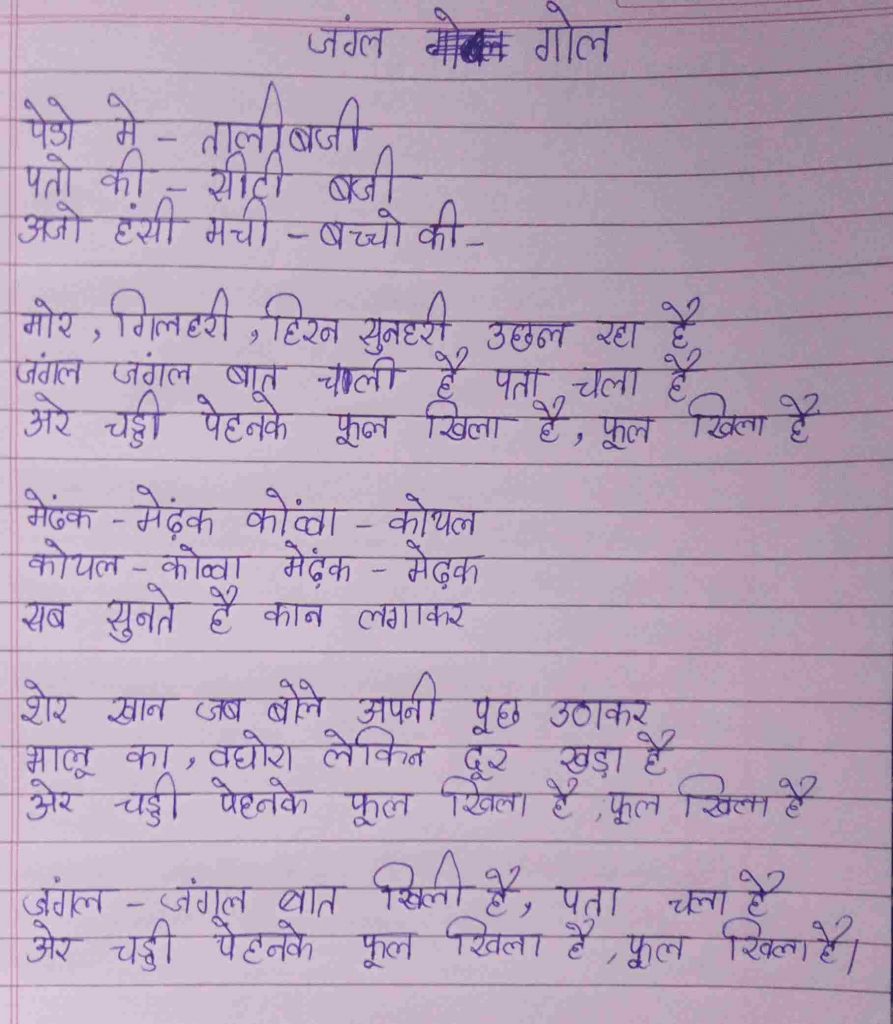 जंगल गोल
पेडो मे - ताली बजी
पतो की - सीटी बजी
अजो हंसी मची - बच्चो की -
मोर , गिलहरी , हिरन सुनहरी उछल रहा है
जंगल जंगल बात चली है पता चला है
अरे चड्डी पेहनके फूल खिला है , फूल खिला है
मेढंक - मेढ़ंक कोंव्वा - कोयल
कोयल - कोव्वा मेढ़ंक - मेढ़क
सब सुनते है कान लगाकर
शेर खान जब बोले अपनी पूछ उठाकर
भालू का , वघोरा लेकिन दूर खड़ा है
अेर चड्डी पेहनके फूल खिला है , फूल खिला है
जंगल - जंगल बात खिली है , पता चला है
अेर चड्डी पेहनके फूल खिला है , फूल खिला है।